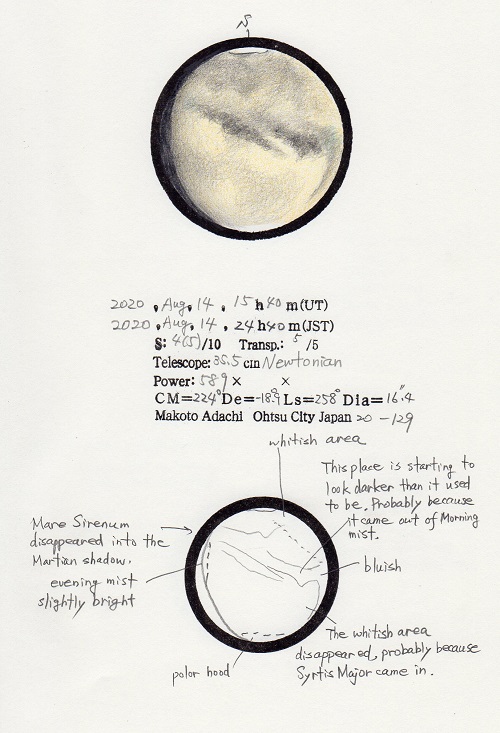 S
2020, Aug. 14, 15h40m(UT)
2020, Aug. 14, 24h40m(JST)
S: 4(5)/10 Transp.: 5/5
Telescope: 35.5cm Newtonian
Power: 589× ×
CM=224° De=-18.9° Ls=258° Dia=16".4
Makoto Adachi Ohtsu City Japan 20-129
whitish area
This place is starting to
look darker than it used
to be. Probably because
it came out of Morning
mist.
Mare Sirenum
disappeared into the
Martian shadow.
evening mist
slightly bright
bluish
The whitish area
disappeared, probably because
Syrtis Major came in.
polar hood